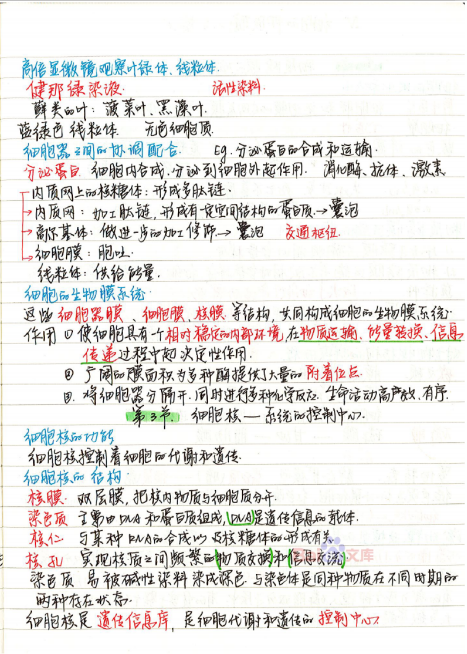 高倍显微镜观察叶绿体、线粒体.
健那绿染液 活性染料
鲜类的叶: 菠菜叶、黑藻叶.
蓝绿色 线粒体 无色细胞质.
细胞器之间的协调配合. eg. 分泌蛋白的合成和运输.
分泌蛋白 细胞内合成, 分泌到细胞外起作用. 消化酶、抗体、激素
内质网上的核糖体: 形成多肽链.
→内质网: 加工肽链, 形成有一定空间结构的蛋白质→囊泡
→高尔基体: 做进一步的加工修饰→囊泡 交通枢纽.
→细胞膜: 胞吐.
线粒体: 供给能量.
细胞的生物膜系统.
这些细胞器膜、细胞膜、核膜等结构, 共同构成细胞的生物膜系统.
作用 ① 使细胞具有一个相对稳定的内部环境, 在物质运输、能量转换、信息
传递过程中起决定性作用.
② 广阔的膜面积为多种酶提供了大量的附着位点.
③. 将细胞器分隔开, 同时进行多种化学反应. 生命活动高效、有序.
第3节. 细胞核—系统的控制中心.
细胞核的功能
细胞核控制着细胞的代谢和遗传.
细胞核的结构
核膜 双层膜, 把核内物质与细胞质分开.
染色质 主要由DNA和蛋白质组成, DNA是遗传信息的载体.
核仁 与某种RNA的合成以及核糖体的形成有关
核孔 实现核质之间频繁的物质交换和信息交流
染色质 易被碱性染料染成深色 与染色体是同种物质在不同时期的
两种存在状态.
细胞核是遗传信息库, 是细胞代谢和遗传的控制中心.
文库